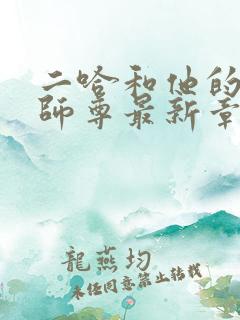 二哈和他的
師尊最新章
龍燕均
未经同意禁止转载